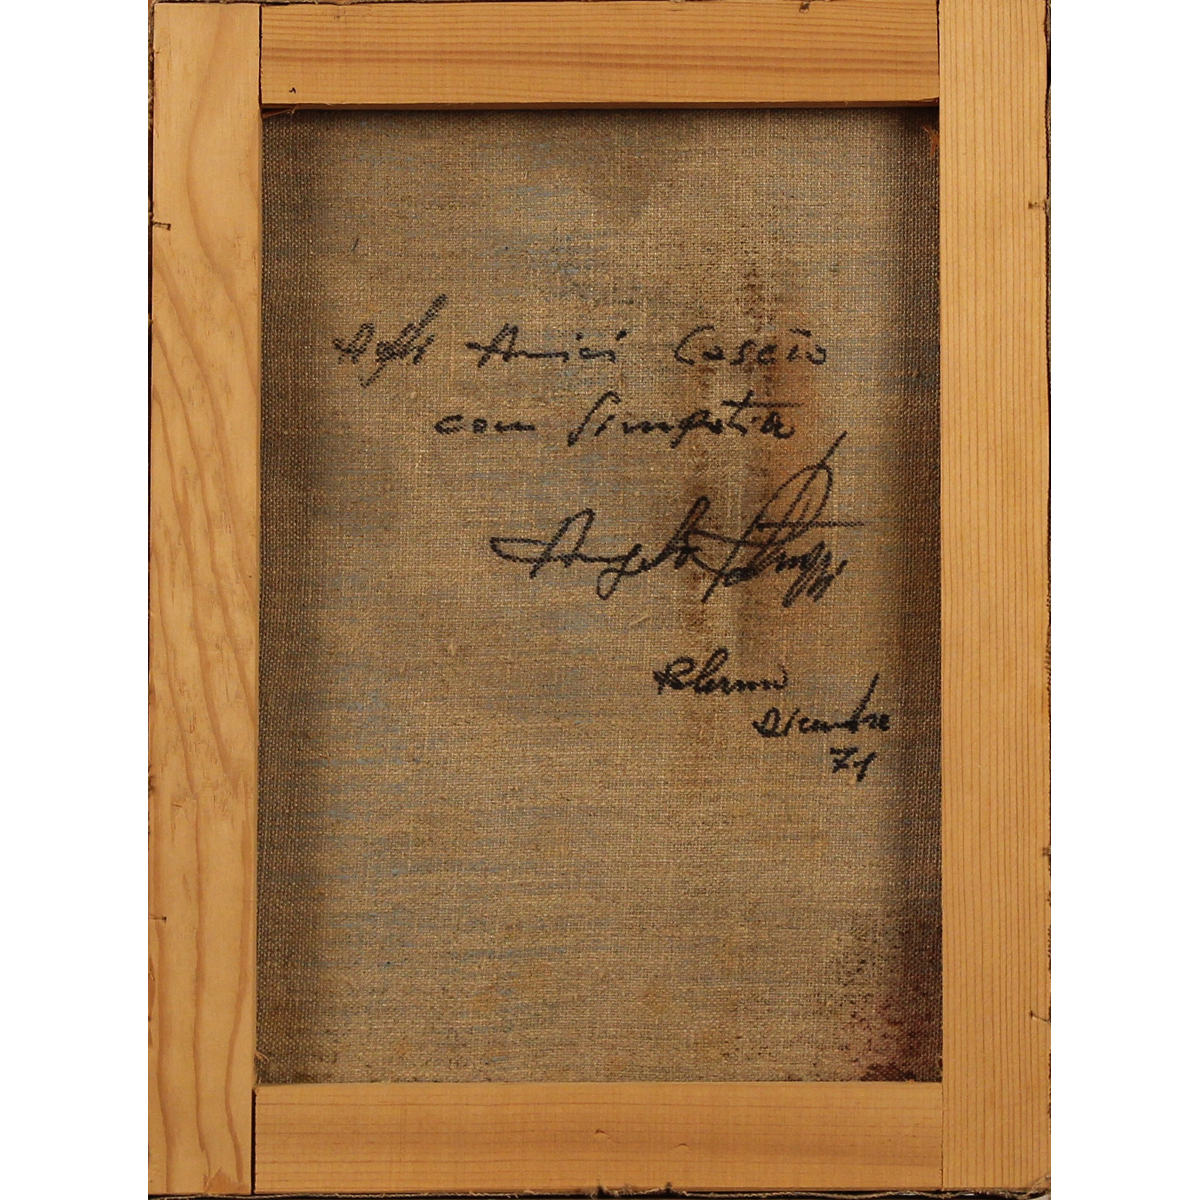 Agli Amici Cascio
con Simpatia
Angelo
Palermo
Dicembre
71